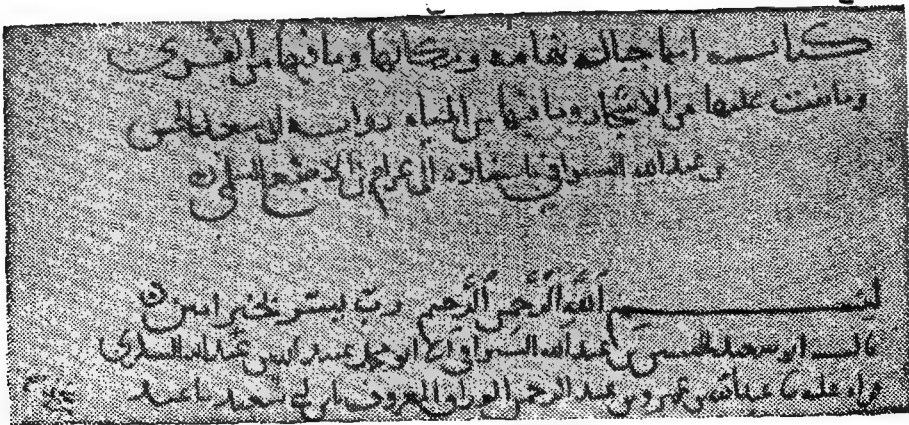 كتاب اسما جبال تهامه وسكانها وما فيها من القرى
وما ينبت عليها من الاشجار وما فيها من المياه رواية ابى سعيد الحسن
بن عبد الله السيرافى باسناده الى عرام بن الاصبغ السلمى
بسم الله الرحمن الرحيم رب يسر بخير امين
قال ابو سعيد الحسن بن عبد الله السيرافى ابو محمد عبيد الله بن عبد الله السكرى
عبد الله بن عمرو بن عبد الرحمن الوراق المعروف بابن ابى سعيد